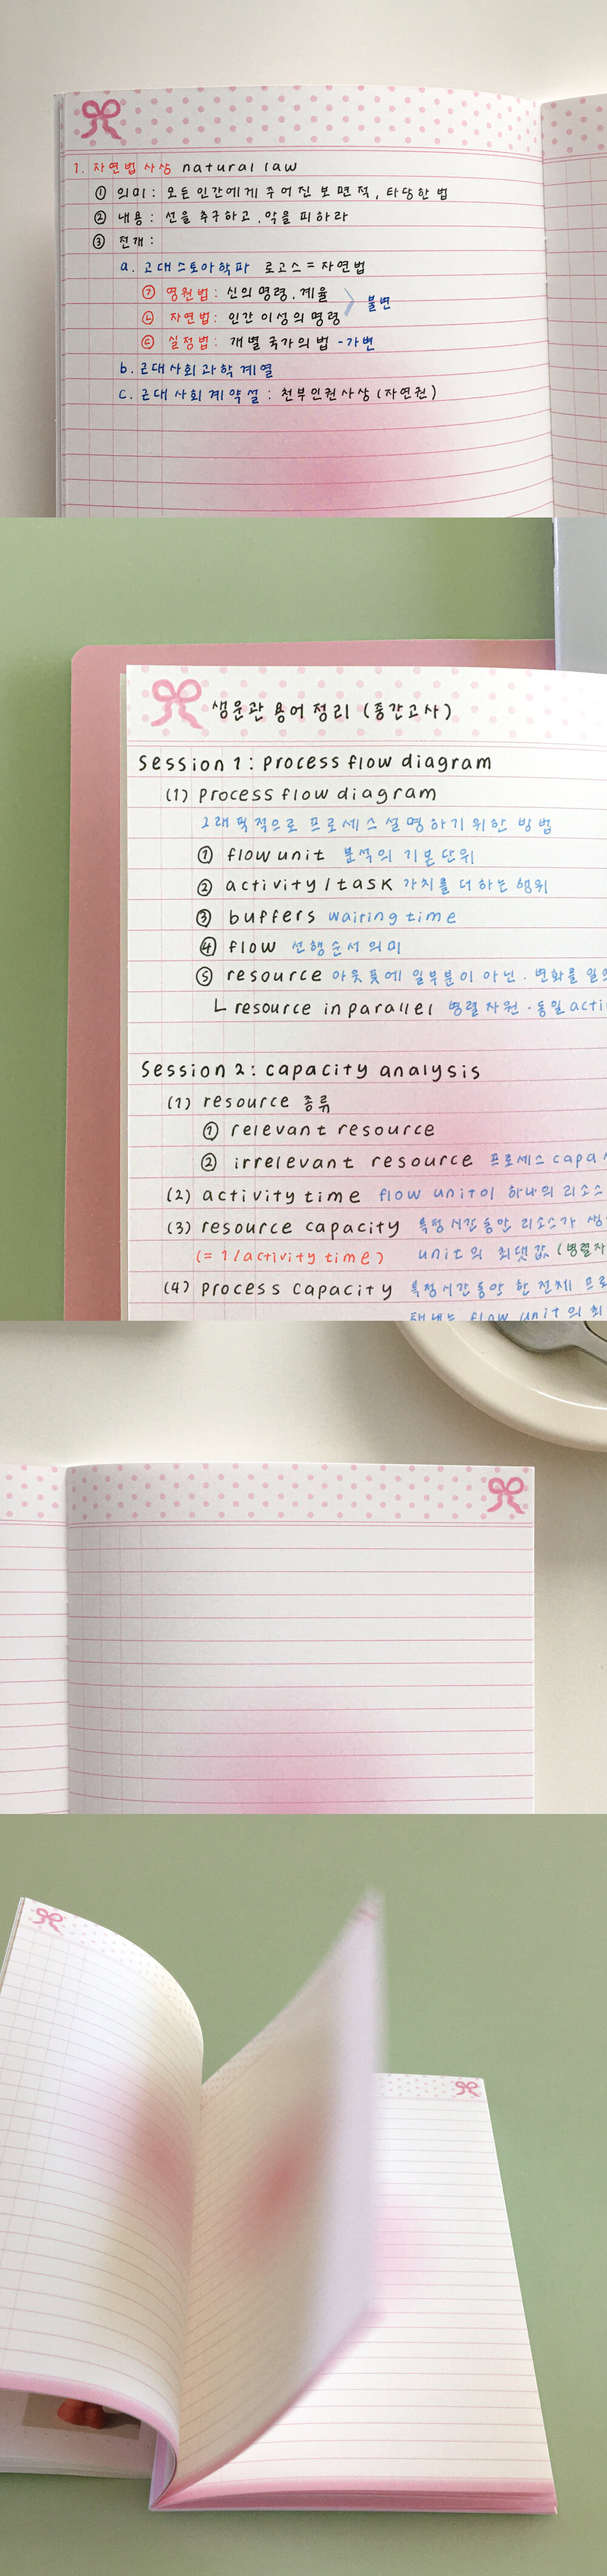 1. 자연법 사상 natural law
① 의미 : 모든 인간에게 주어진 보편적, 타당한 법
② 내용 : 선을 추구하고, 악을 피하라
③ 전개 :
a. 고대 스토아학파 로고스 = 자연법
㉠ 영원법 : 신의 명령, 계율
불변
㉡ 자연법 : 인간 이성의 명령
㉢ 실정법 : 개별 국가의 법 - 가변
b. 근대 사회 과학 계열
c. 근대 사회 계약설 : 천부인권사상 (자연권)
생운관 용어 정리 (중간고사)
Session 1 : process flow diagram
(1) process flow diagram
그래픽적으로 프로세스 설명하기 위한 방법
① flow unit 분석의 기본 단위
② activity / task 가치를 더하는 행위
③ buffers waiting time
④ flow 선행순서 의미
⑤ resource 아웃풋에 일부분이 아닌, 변화를
ㄴ resource in parallel 병렬 자원 · 동일 acti
Session 2 : capacity analysis
(1) resource 종류
① relevant resource
② irrelevant resource 프로세스 capa
(2) activity time flow unit이 하나의 리소스
(3) resource capacity 특정시간동안 리소스가
(= 1 / activity time) unit의 최댓값 (병렬자
(4) process capacity 특정시간동안 한 전체 프로
flow unit의 최